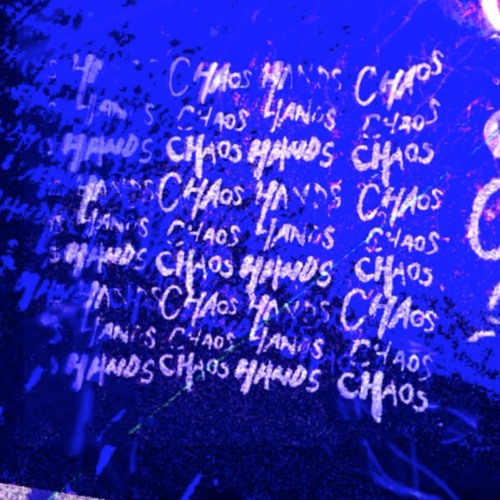 CHAOS HANDS CHAOS
HANDS CHAOS HANDS CHAOS
HANDS CHAOS HANDS CHAOS
HANDS CHAOS HANDS CHAOS
HANDS CHAOS HANDS CHAOS
HANDS CHAOS HANDS CHAOS
HANDS CHAOS HANDS CHAOS
HANDS CHAOS HANDS CHAOS
HANDS CHAOS HANDS CHAOS